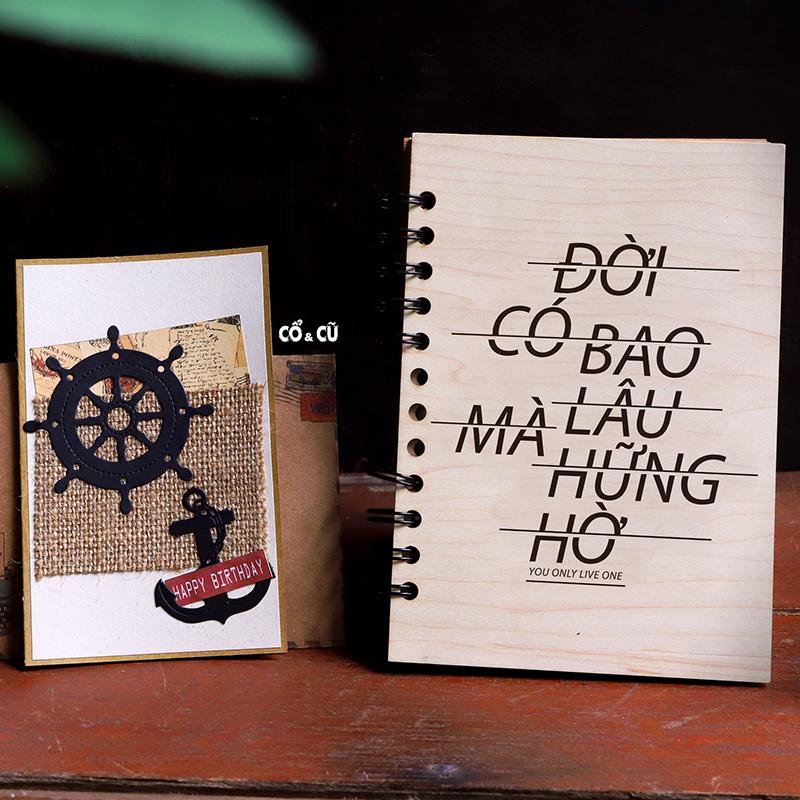 CỔ & CŨ
HAPPY BIRTHDAY
ĐỜI
CÓ BAO
LÂU
MÀ
HỮNG
HỜ
YOU ONLY LIVE ONE